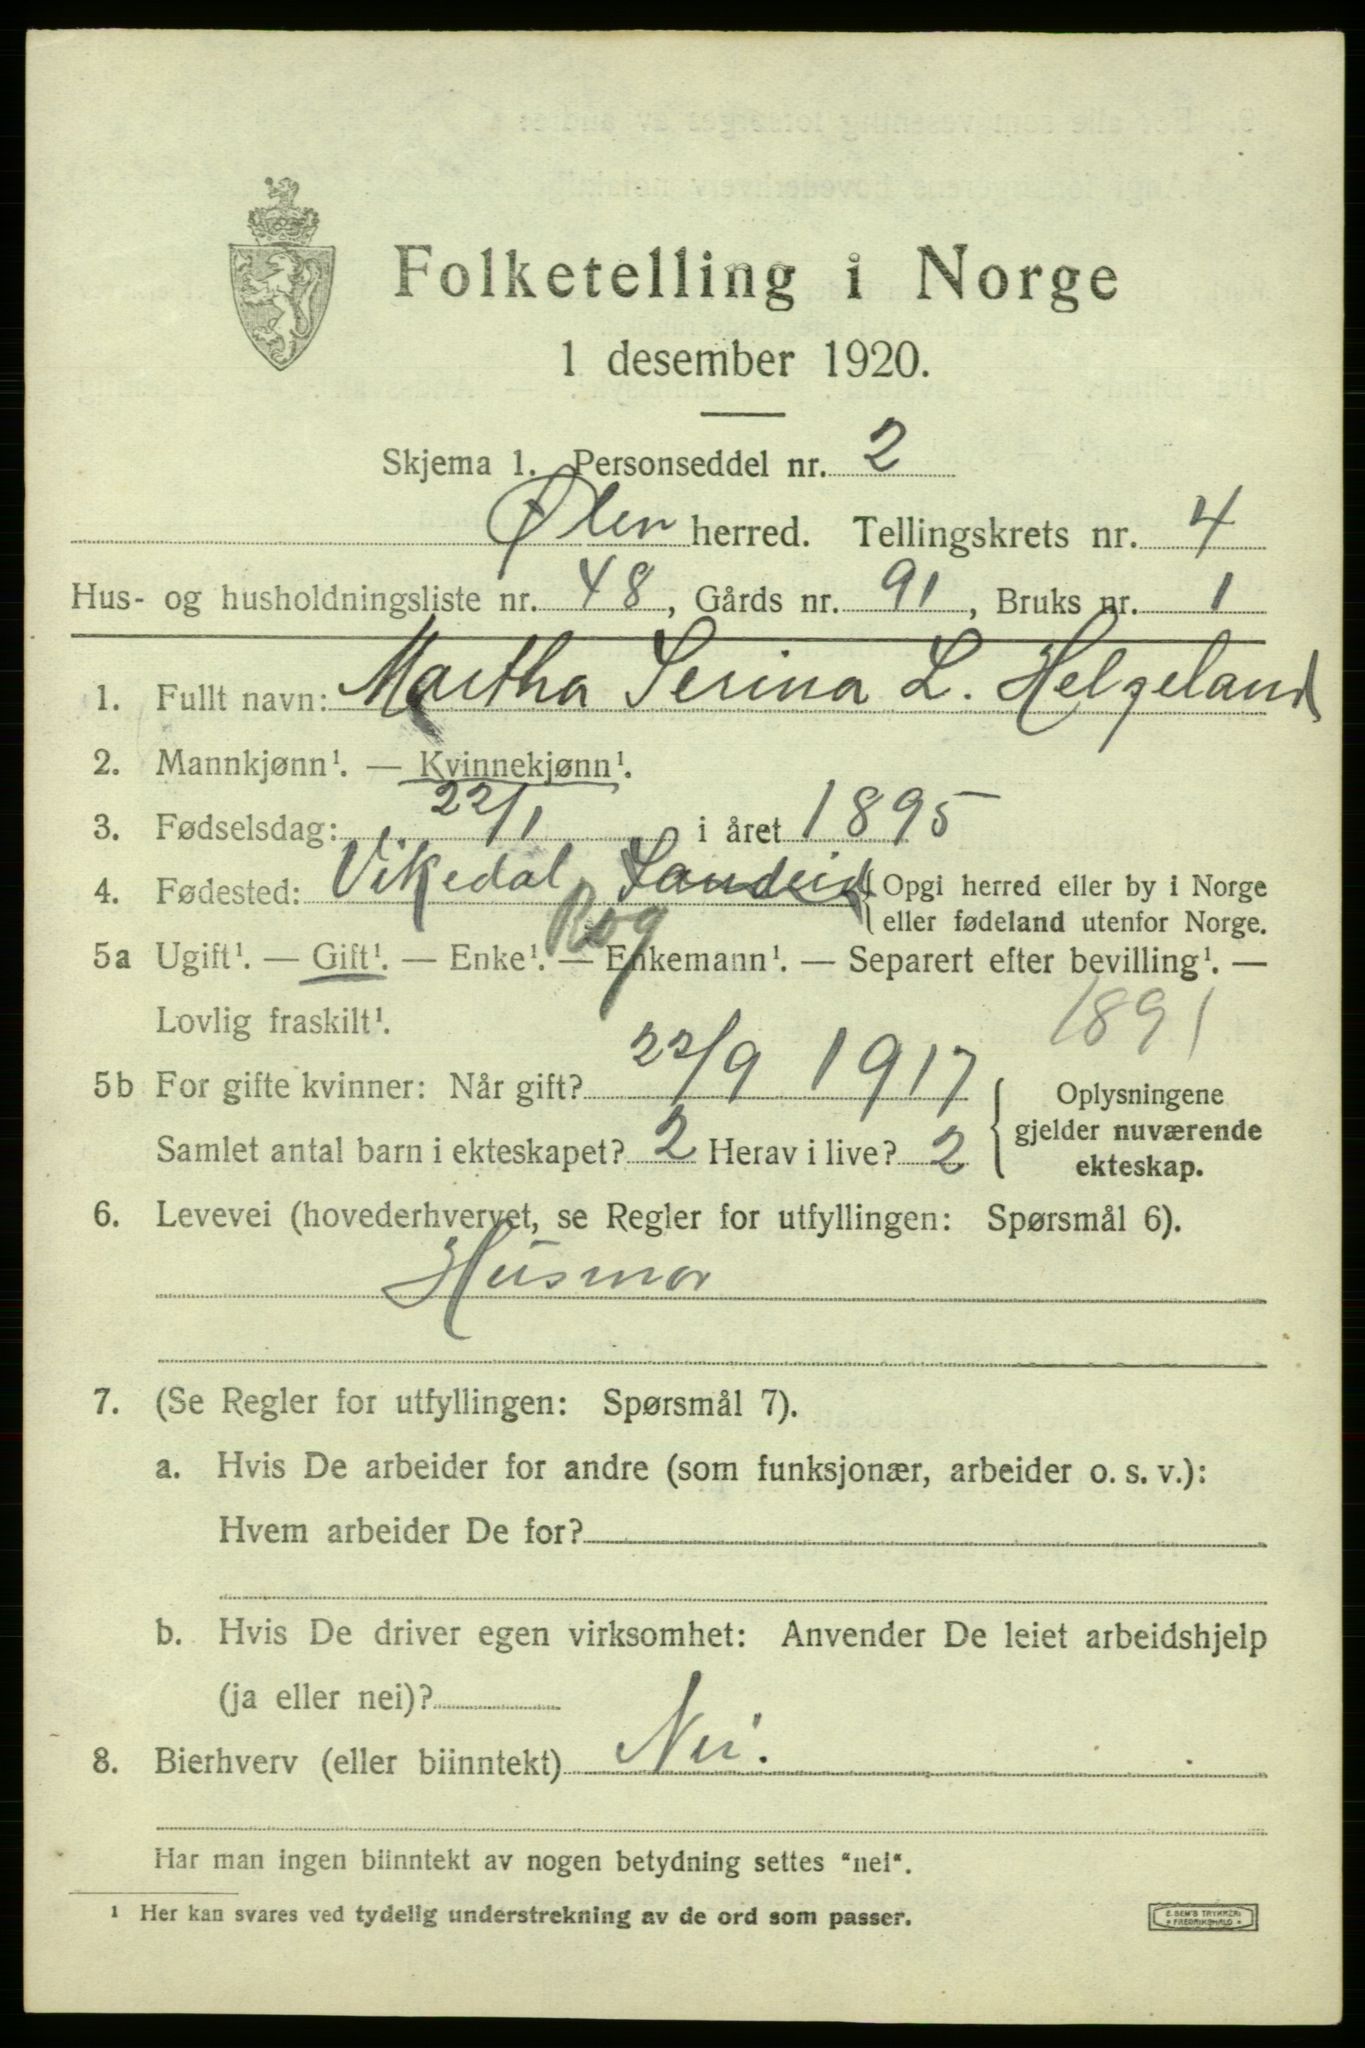 Folketelling i Norge
1 desember 1920.
Skjema 1. Personseddel nr. 2
Ølen herred. Tellingskrets nr. 4
Hus- og husholdningsliste nr. 48, Gårds nr. 91, Bruks nr. 1
1. Fullt navn: Martha Serina L. Helgeland
2. Mannkjønn¹. — Kvinnekjønn¹.
3. Fødselsdag: 22/1 i året 1895
4. Fødested: Vikedal Sandeid { Opgi herred eller by i Norge
eller fødeland utenfor Norge.
Rog
5a Ugift¹. — Gift¹. — Enke¹. — Enkemann¹. — Separert efter bevilling¹. —
Lovlig fraskilt¹.
1891
5b For gifte kvinner: Når gift? 22/9 1917
Samlet antal barn i ekteskapet? 2 Herav i live? 2
{ Oplysningene
gjelder nuværende
ekteskap.
6. Levevei (hovederhvervet, se Regler for utfyllingen: Spørsmål 6).
Husmor
7. (Se Regler for utfyllingen: Spørsmål 7).
a. Hvis De arbeider for andre (som funksjonær, arbeider o. s. v.):
Hvem arbeider De for?
b. Hvis De driver egen virksomhet: Anvender De leiet arbeidshjelp
(ja eller nei)?
8. Bierhverv (eller biinntekt) Nei.
Har man ingen biinntekt av nogen betydning settes "nei".
¹ Her kan svares ved tydelig understrekning av de ord som passer.
E. SEM'S TRYKKERI
FREDRIKSHALD